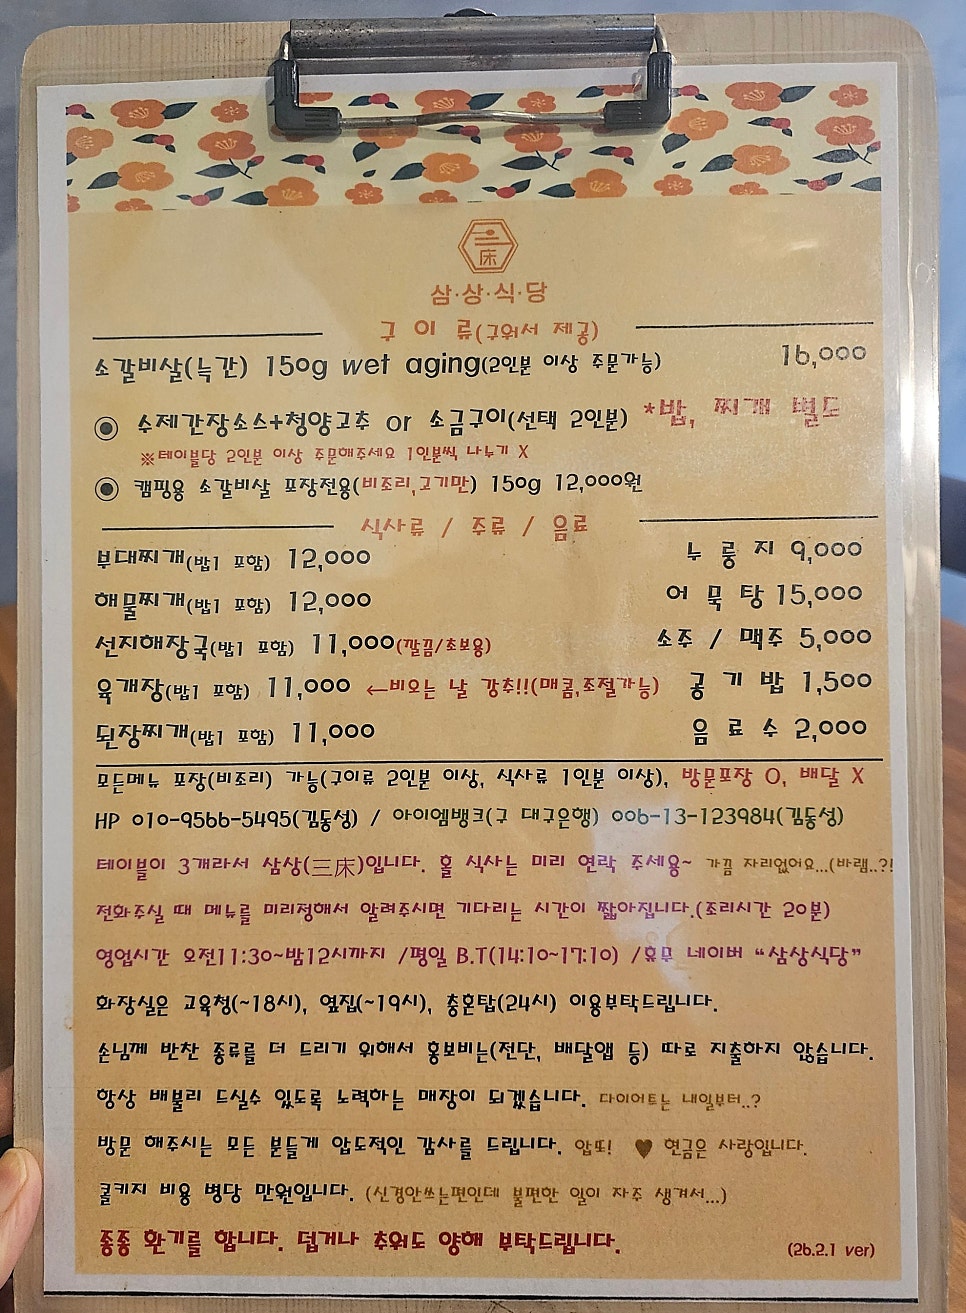 三
床
삼·상·식·당
구 이 류(구워서 제공)
소갈비살(늑간) 150g wet aging(2인분 이상 주문가능) 16,000
◉ 수제간장소스+청양고추 or 소금구이(선택 2인분) *밥, 찌개 별도
※테이블당 2인분 이상 주문해주세요 1인분씩 나누기 X
◉ 캠핑용 소갈비살 포장전용(비조리,고기만) 150g 12,000원
식사류 / 주류 / 음료
부대찌개(밥1 포함) 12,000 누 룽 지 9,000
해물찌개(밥1 포함) 12,000 어 묵 탕 15,000
선지해장국(밥1 포함) 11,000(깔끔/초보용) 소주 / 맥주 5,000
육개장(밥1 포함) 11,000 ←비오는 날 강추!!(매콤,조절가능) 공 기 밥 1,500
된장찌개(밥1 포함) 11,000 음 료 수 2,000
모든메뉴 포장(비조리) 가능(구이류 2인분 이상, 식사류 1인분 이상), 방문포장 O, 배달 X
HP 010-9566-5495(김동성) / 아이엠뱅크(구 대구은행) 006-13-123984(김동성)
테이블이 3개라서 삼상(三床)입니다. 홀 식사는 미리 연락 주세용~ 가끔 자리없어요...(바램..?!
전화주실 때 메뉴를 미리정해서 알려주시면 기다리는 시간이 짧아집니다.(조리시간 20분)
영업시간 오전11:30~밤12시까지 /평일 B.T(14:10~17:10) /휴무 네이버 “삼상식당”
화장실은 교육청(~18시), 옆집(~19시), 충혼탑(24시) 이용부탁드립니다.
손님께 반찬 종류를 더 드리기 위해서 홍보비는(전단, 배달앱 등) 따로 지출하지 않습니다.
항상 배불리 드실수 있도록 노력하는 매장이 되겠습니다. 다이어트는 내일부터..?
방문 해주시는 모든 분들게 압도적인 감사를 드립니다. 압또! ♥ 현금은 사랑입니다.
콜키지 비용 병당 만원입니다. (신경안쓰는편인데 불편한 일이 자주 생겨서...)
종종 환기를 합니다. 덥거나 추워도 양해 부탁드립니다. (26.2.1 ver)